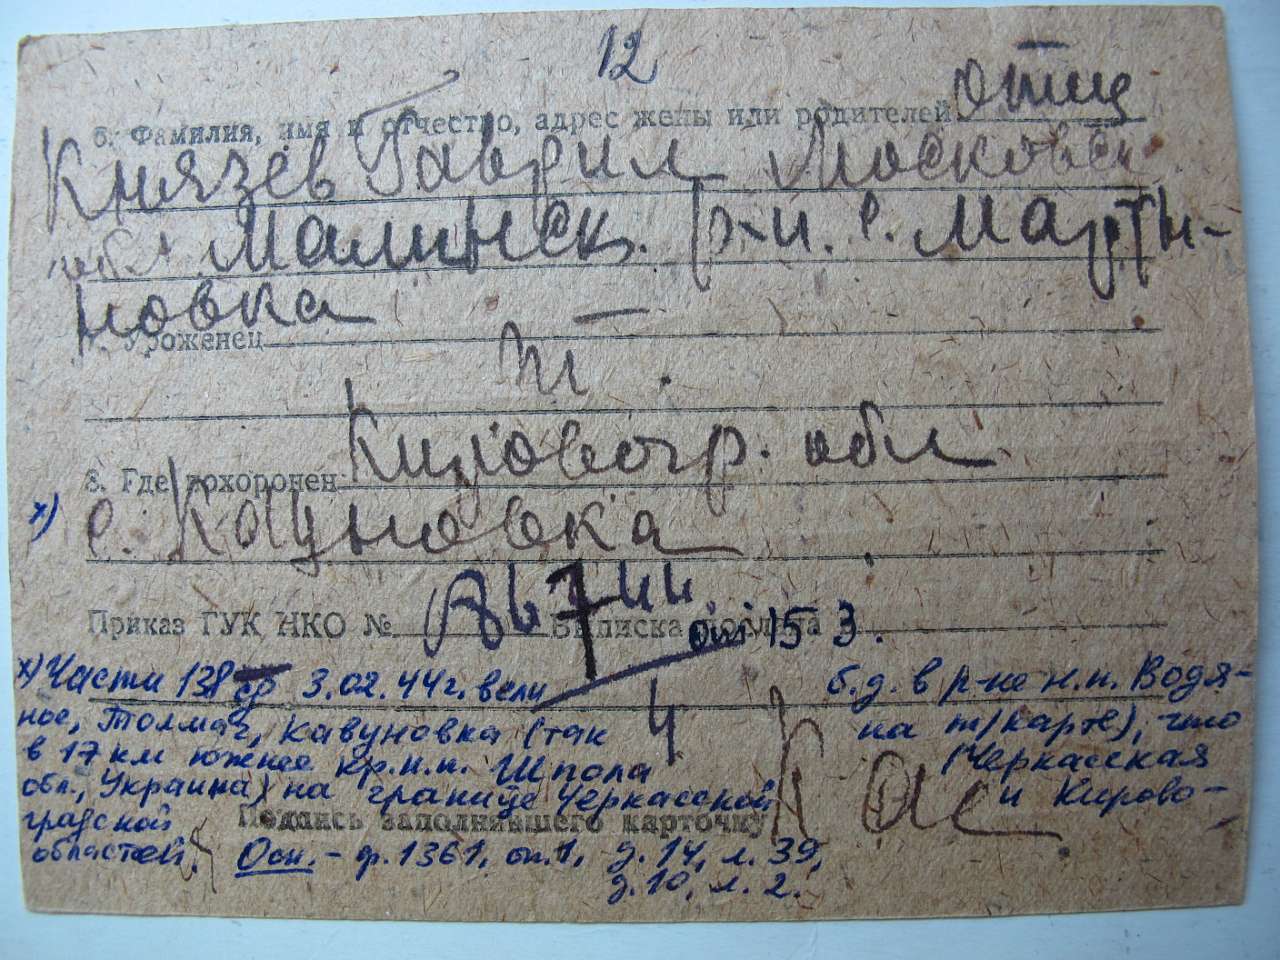 12
6. Фамилия, имя и отчество, адрес жены или родителей отец
Князев Гаврил Московск
обл. Малинск. р-н. с. Марты-
новка —
7. Уроженец
8. Где похоронен Кировогр. обл
х) с. Кацновка
Приказ ГУК НКО № Выписка послана
от 15 3.
4
х) Части 138 сд 3.02.44г. вели б.д. в р-не н.п. Водя-
ное, Толмач, Кавуновка (так на т/карте), что
в 17 км южнее кр.н.п. Шпола (Черкасская
обл., Украина) на границе Черкасской и Кирово-
градской
Подпись заполнявшего карточку
областей. Осн. - ф. 1361, оп. 1, д. 14, л. 39,
д. 10, л. 2.